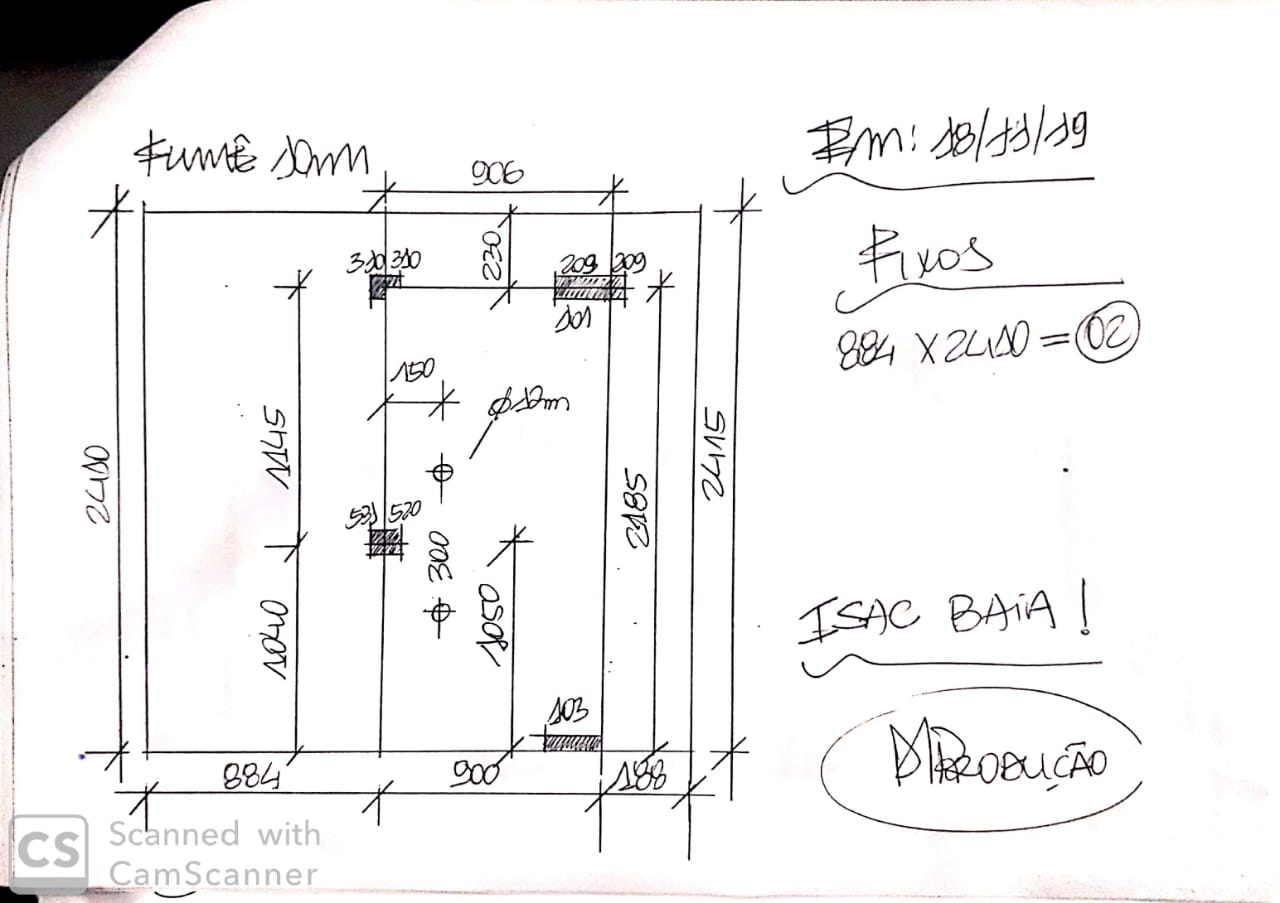 Fumê 10mm
Em: 18/11/19
906
Fixos
230
310 310
209 209
101
884 X 2410 = 02
150
Ø12m
1145
2410
2415
2185
531 520
300
1050
1040
ISAC BAIA!
103
PRODUÇÃO
884
900
188
CS Scanned with
CamScanner